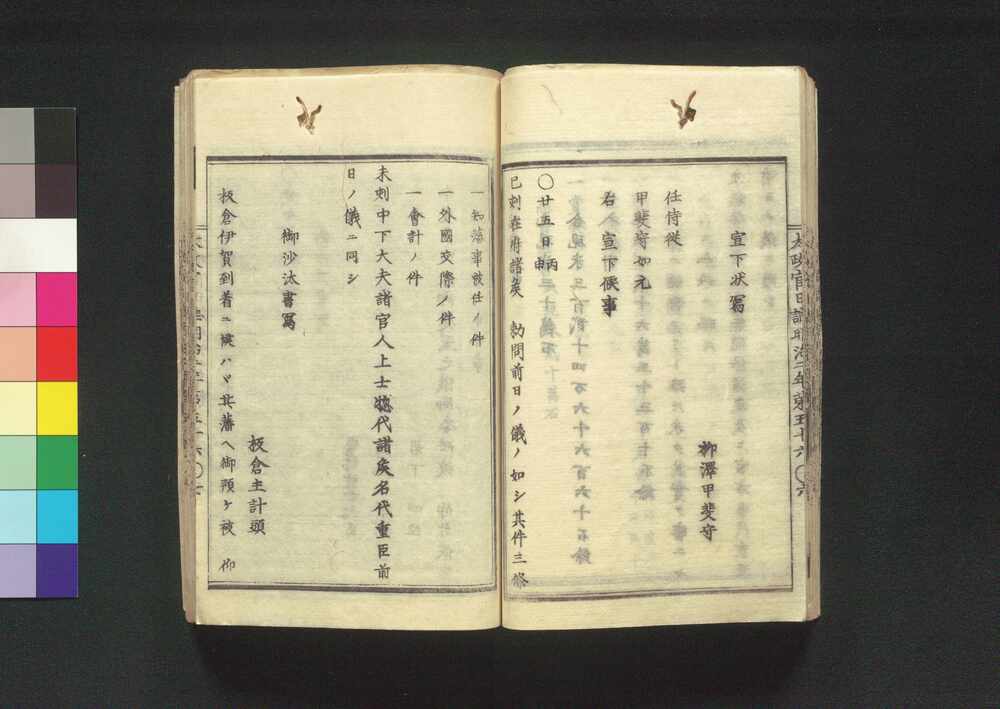 宣下状寫
柳澤甲斐守
任侍従
甲斐守如元
右人宣下候事
〇廿五日丙申
巳刻在府諸矦 勅問前日ノ儀ノ如シ其件三條
太政官日誌明治二年第五十六 〇六
一 知藩事被任ノ件
一 外國交際ノ件
一 會計ノ件
未刻中下大夫諸官人上士惣代諸矦名代重臣前
日ノ儀ニ同シ
御沙汰書寫
板倉主計頭
板倉伊賀到着ニ候ハヾ其藩ヘ御預ケ被 仰